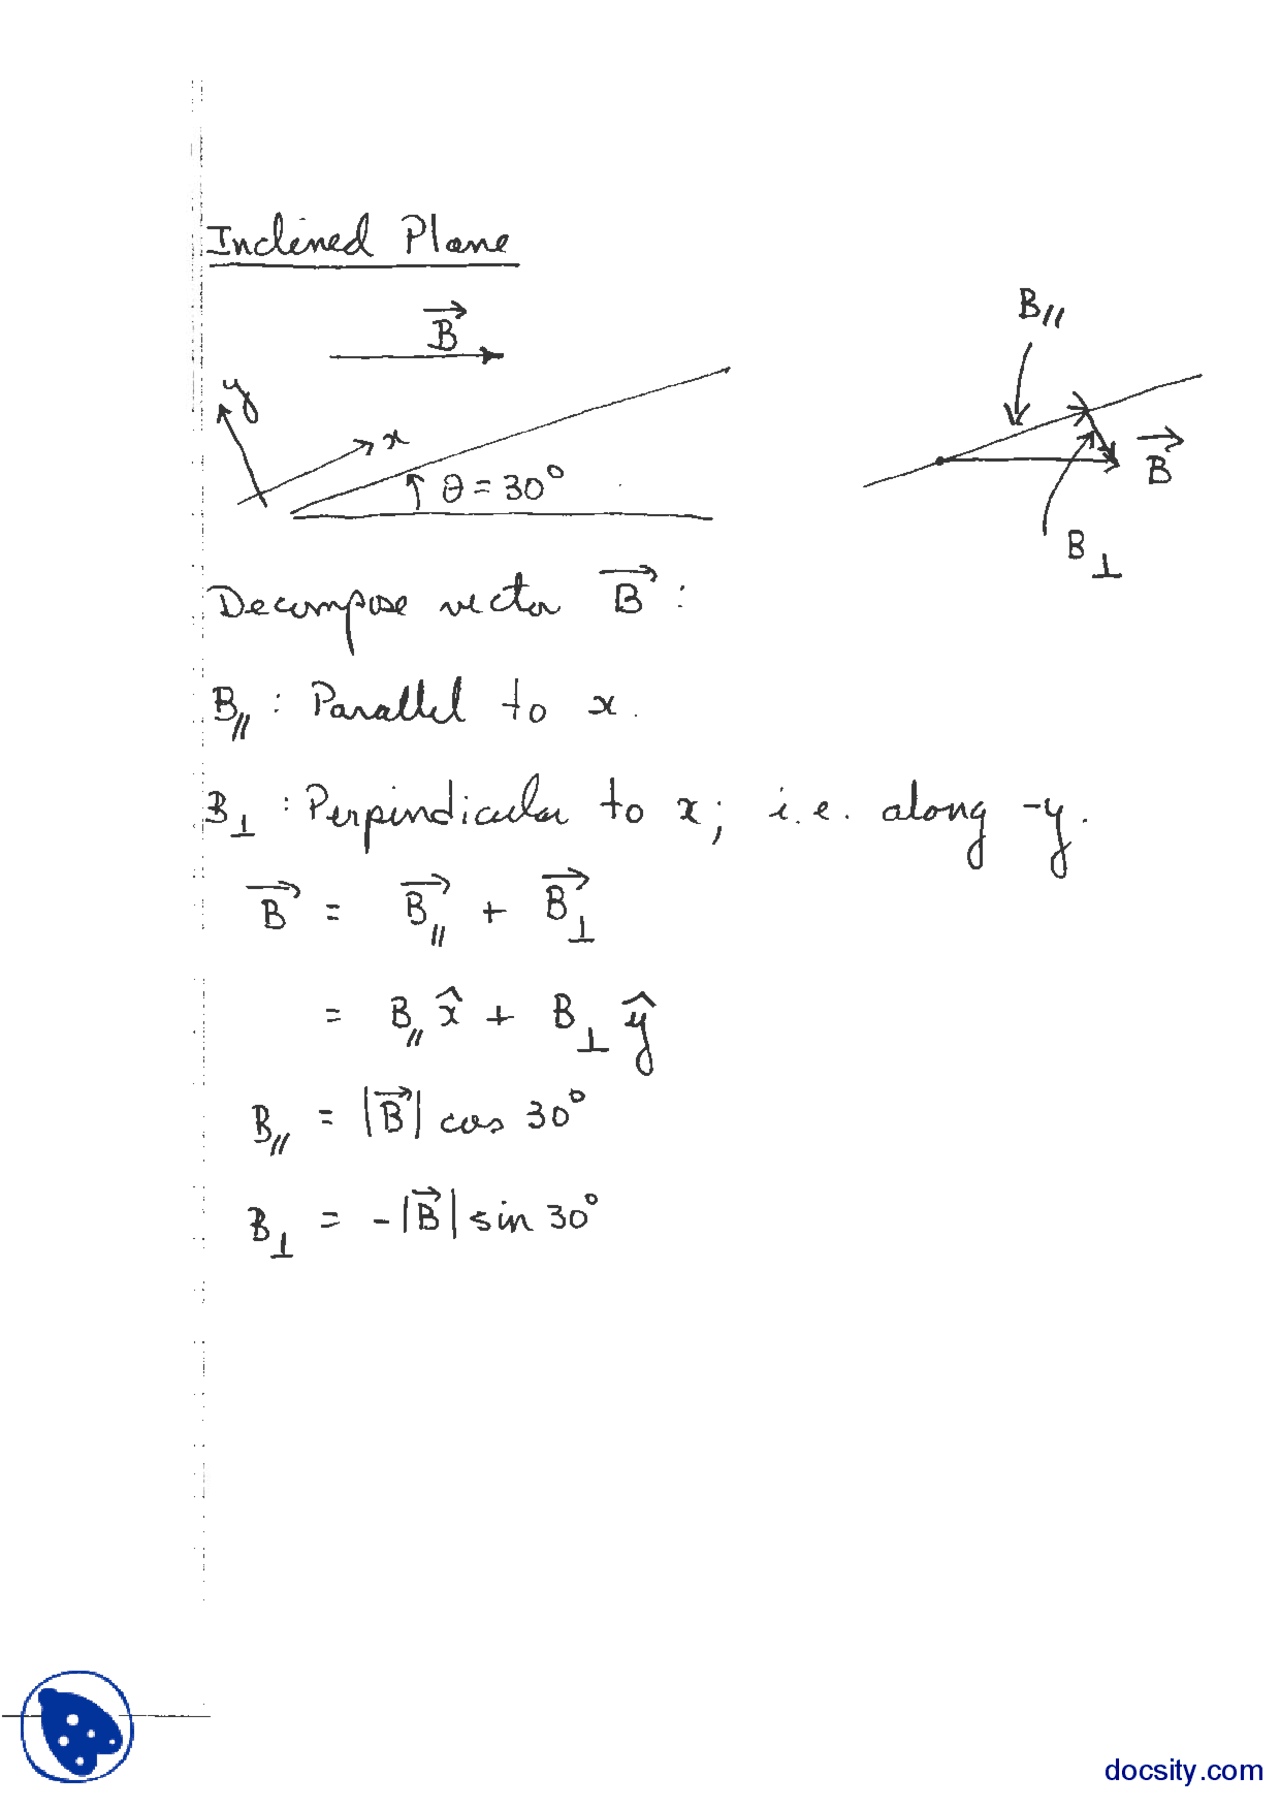 Inclined Plane
B⃗
y
x
θ = 30°
B∥
B⃗
B⊥
Decompose vector B⃗ :
B∥ : Parallel to x.
B⊥ : Perpindicular to x; i.e. along -y.
B⃗ = B⃗∥ + B⃗⊥
= B∥ x̂ + B⊥ ŷ
B∥ = |B⃗| cos 30°
B⊥ = -|B⃗| sin 30°
docsity.com